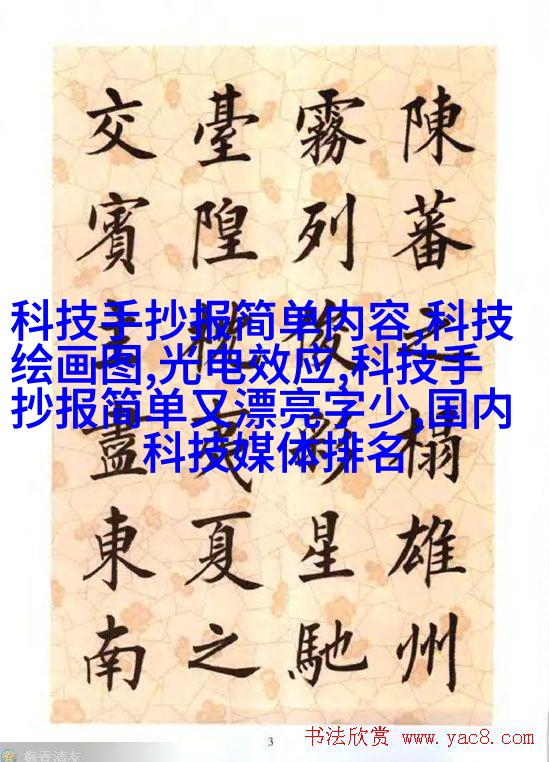 科技手抄报简单内容,科技
绘画图,光电效应,科技手
抄报简单又漂亮字少,国内
科技媒体排名
陳蕃之榻雄州
霧列俊彩星馳
臺隍枕夷夏之
交賓主盡東南
3
书法欣赏 www.yac8.com